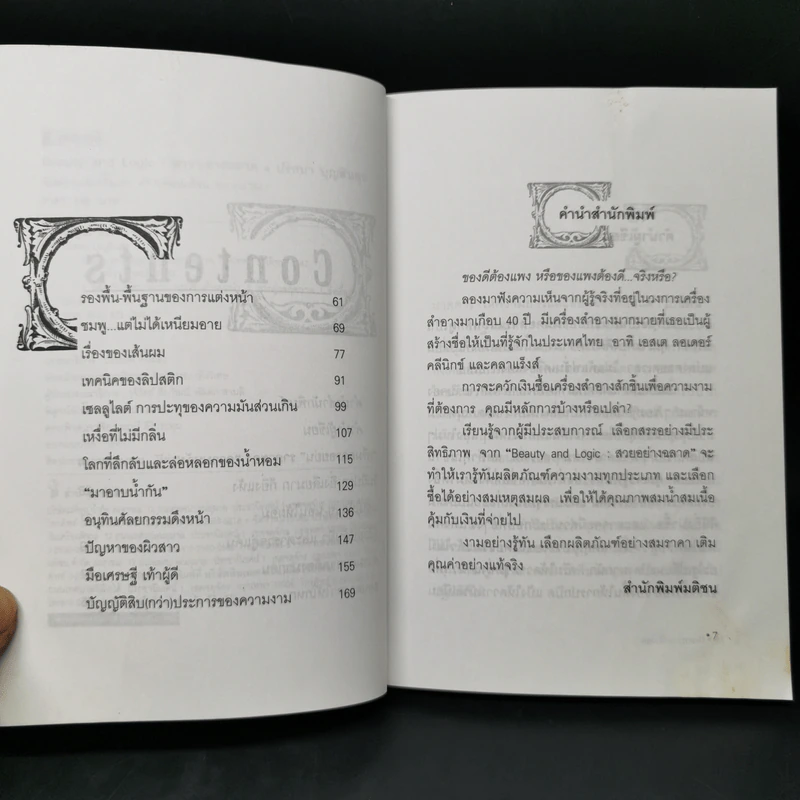 รองพื้น-พื้นฐานของการแต่งหน้า 61
ชมพู...แต่ไม่ได้เหนียมอาย 69
เรื่องของเส้นผม 77
เทคนิคของลิปสติก 91
เซลลูไลต์ การปะทุของความมันส่วนเกิน 99
เหงื่อที่ไม่มีกลิ่น 107
โลกที่ลึกลับและล่อหลอกของน้ำหอม 115
“มาอาบน้ำกัน” 129
อนุทินศัลยกรรมดึงหน้า 136
ปัญหาของผิวสาว 147
มือเศรษฐี เท้าผู้ดี 155
บัญญัติสิบ(กว่า)ประการของความงาม 169
คำนำสำนักพิมพ์
ของดีต้องแพง หรือของแพงต้องดี...จริงหรือ?
ลองมาฟังความเห็นจากผู้รู้จริงที่อยู่ในวงการเครื่อง
สำอางมาเกือบ 40 ปี มีเครื่องสำอางมากมายที่เธอเป็นผู้
สร้างชื่อให้เป็นที่รู้จักในประเทศไทย อาทิ เอสเต ลอเดอร์
คลีนิกข์ และคลาแร็งส์
การจะควักเงินซื้อเครื่องสำอางสักชิ้นเพื่อความงาม
ที่ต้องการ คุณมีหลักการบ้างหรือเปล่า?
เรียนรู้จากผู้มีประสบการณ์ เลือกสรรอย่างมีประ
สิทธิภาพ จาก “Beauty and Logic : สวยอย่างฉลาด” จะ
ทำให้เรารู้ทันผลิตภัณฑ์ความงามทุกประเภท และเลือก
ซื้อได้อย่างสมเหตุสมผล เพื่อให้ได้คุณภาพสมน้ำสมเนื้อ
คุ้มกับเงินที่จ่ายไป
งามอย่างรู้ทัน เลือกผลิตภัณฑ์อย่างสมราคา เติม
คุณค่าอย่างแท้จริง
สำนักพิมพ์มติชน
• 7